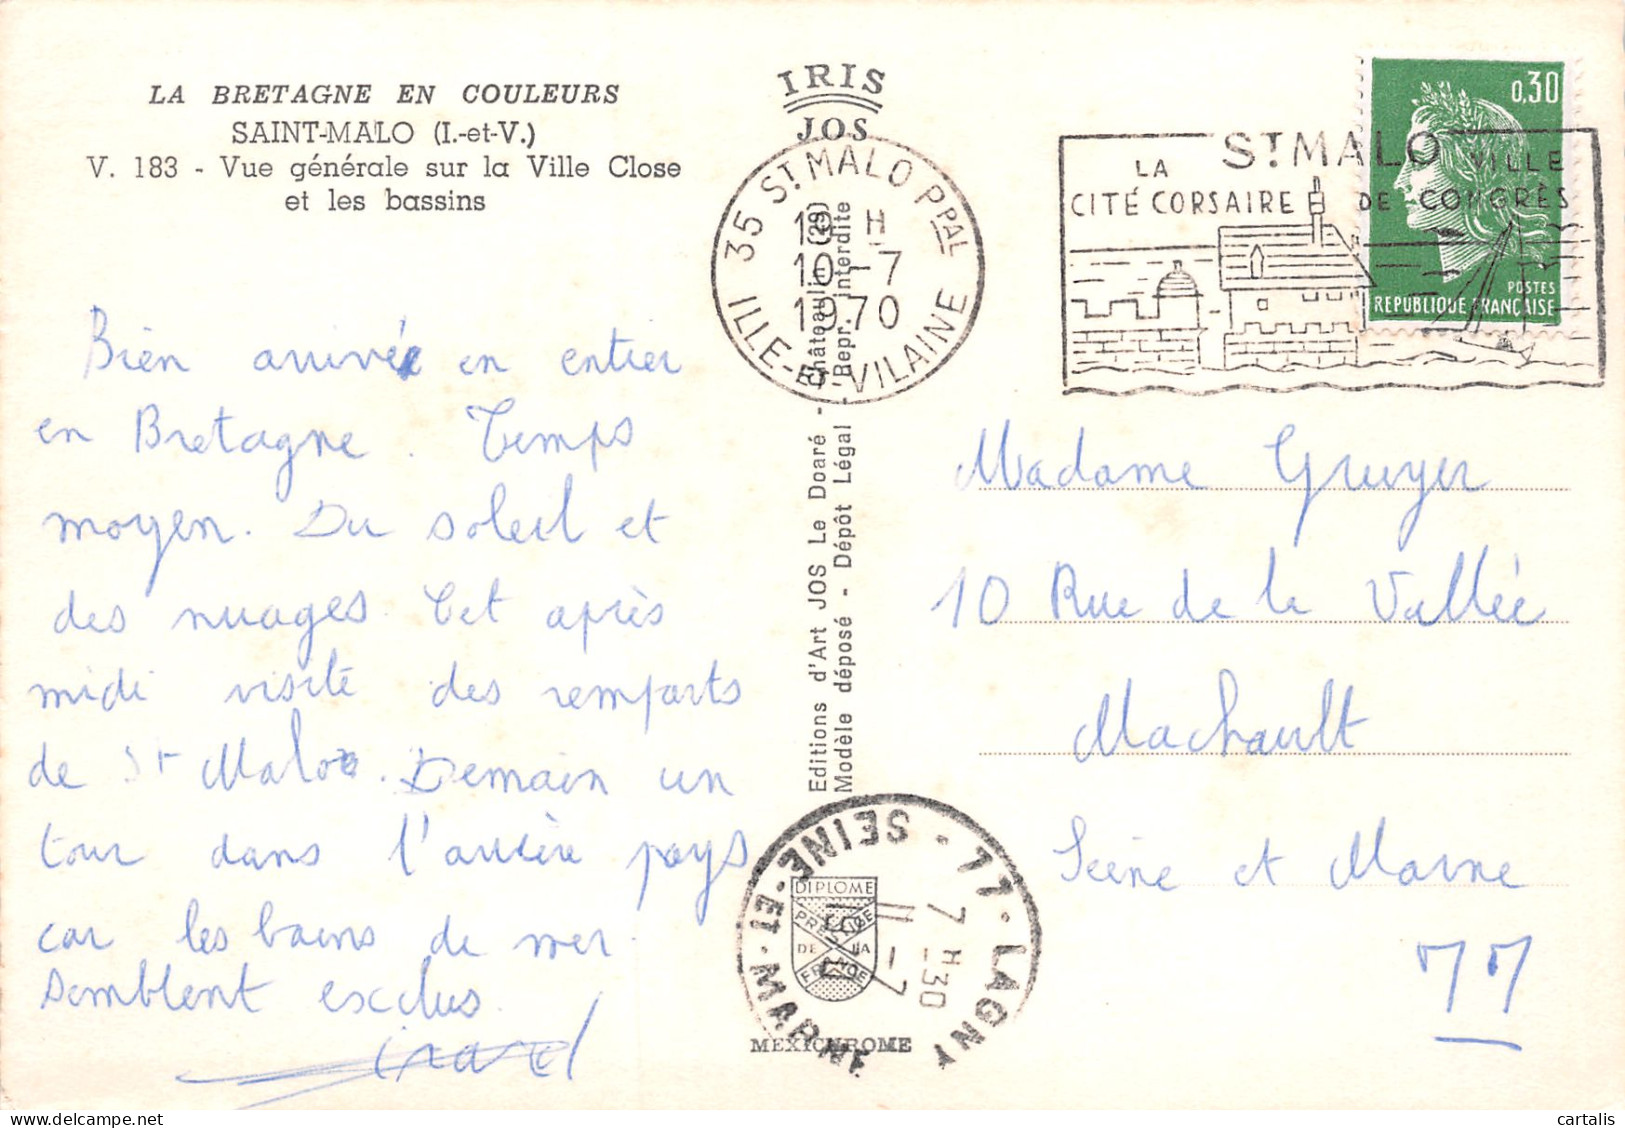 LA BRETAGNE EN COULEURS
SAINT-MALO (I.-et-V.)
V. 183 - Vue générale sur la Ville Close
et les bassins
Bien arrivée en entier
en Bretagne. Temps
moyen. Du soleil et
des nuages. Cet après
midi visite des remparts
de St Malo. Demain un
tour dans l'arrière pays
car les bains de mer
semblent exclus.
IRIS
JOS
35 ST MALO PPAL
19 H
10-7
1970
ILLE-ET-VILAINE
Editions d'Art JOS Le Doaré - Châteaulin (29)
Modèle déposé - Dépôt Légal - Repr. interdite
77 · LAGNY
SEINE-ET-MARNE
7 H 30
11-7
DIPLOME
PRESTIGE
DE LA
FRANCE
MEXICHROME
ST MALO
LA
CITÉ CORSAIRE
VILLE
DE CONGRÈS
0,30
POSTES
REPUBLIQUE FRANÇAISE
Madame Gruyer
10 Rue de la Vallée
Machault
Seine et Marne
77
cartalis